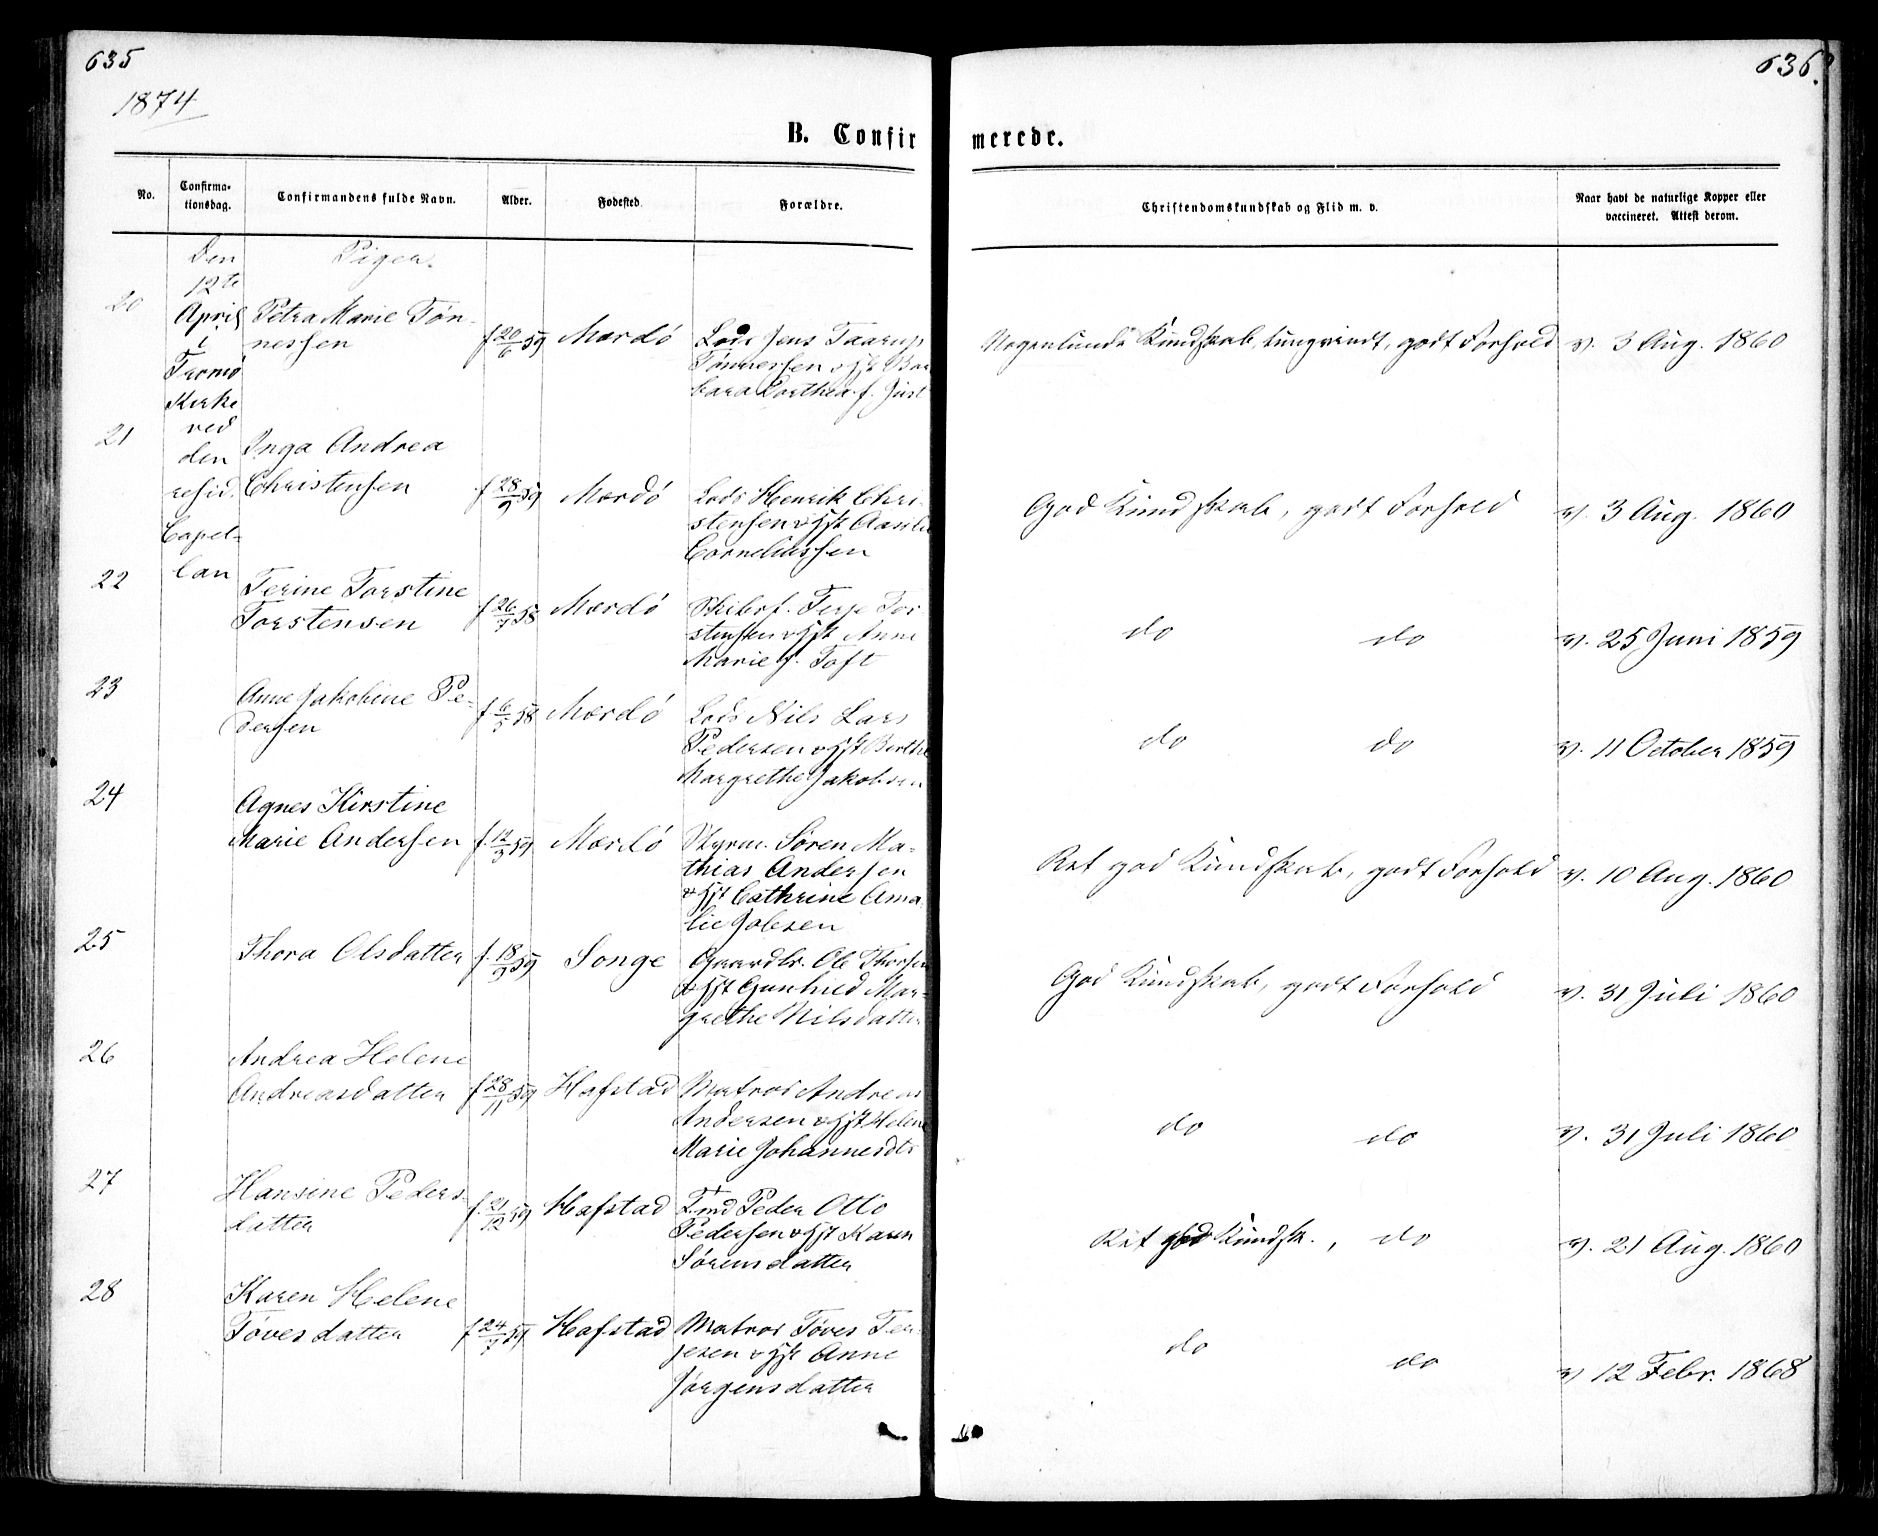 635
636.
1874
B. Confirmerede.
No.
Confirma-
tionsdag.
Confirmandens fulde Navn.
Alder.
Fødested
Forældre.
Christendomskundskab og Flid m. v.
Naar havt de naturlige Kopper eller
vaccineret. Attest derom.
Den
12te
April
i
Tromø
Kirke
ved
den
resid.
Capel-
lan
Pigen.
20
Petra Marie Tøn-
nessen
f 20/6 59
Mærdø
Lods Jens Taarup
Tønnessen & Hst Bar
bara Dorthea f. Just
Nogenlunde Kundskab, tungvindt, godt Forhold
v. 3 Aug. 1860
21
Inga Andrea
Christensen
f 28/9 59
Mærdø
Lods Henrik Chri-
stensen & Hst Aaslu
Corneliussen
God Kundskab, godt Forhold
v. 3 Aug. 1860
22
Terine Torstine
Torstensen
f 26/7 58
Mærdø
Skibsf. Terje Tor
stensen & Hst Anne
Marie f. Toft
do do
v. 25 Juni 1859
23
Anne Jakobine Pe-
dersen
f 6/5 58
Mærdø
Lods Nils Lars
Pedersen & Hst Berthe
Margrethe Jakobsen
do do
v. 11 October 1859
24
Agnes Kirstine
Marie Andersen
f. 12/3 59
Mærdø
Styrm. Søren Ma-
thias Andersen
& Hst Cathrine Ama
lie Jobsen
Ret god Kundskab, godt Forhold
v. 10 Aug. 1860
25
Thora Olsdatter
f. 18/9 59
Songe
Gaardbr. Ole Thorsen
& Hst Gunhild Mar-
grethe Nilsdatter
God Kundskab, godt Forhold
v. 31 Juli 1860
26
Andrea Helene
Andreasdatter
f 28/11 59
Hafstad
Matros Andreas
Andersen & Hst Helene
Marie Johannesdtr
do do
v. 31 Juli 1860
27
Hansine Peders-
datter
f. 21/12 59
Hafstad
Tmd Peder Otto
Pedersen & Hst Karen
Sørensdatter
Ret god Kundsk., do
v. 21 Aug. 1860
28
Karen Helene
Tøvesdatter
f 24/7 59
Hafstad
Matros Tøves Ter-
jesen & Hst Anne
Jørgensdatter
do do
v 12 Febr. 1868